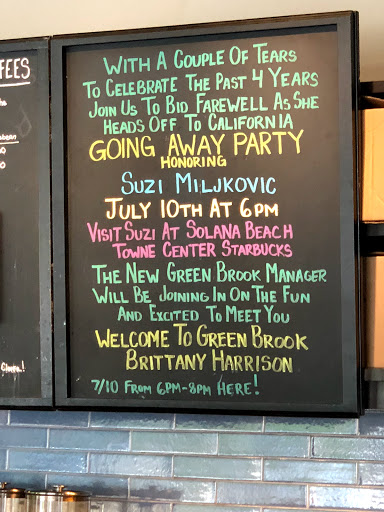 FFEES
WITH A COUPLE OF TEARS
TO CELEBRATE THE PAST 4 YEARS
JOIN US TO BID FAREWELL AS SHE
HEADS OFF TO CALIFORNIA
GOING AWAY PARTY
HONORING
SUZI MILJKOVIC
JULY 10TH AT 6PM
VISIT SUZI AT SOLANA BEACH
TOWNE CENTER STARBUCKS
THE NEW GREEN BROOK MANAGER
WILL BE JOINING IN ON THE FUN
AND EXCITED TO MEET YOU
WELCOME TO GREEN BROOK
BRITTANY HARRISON
7/10 FROM 6PM-8PM HERE!